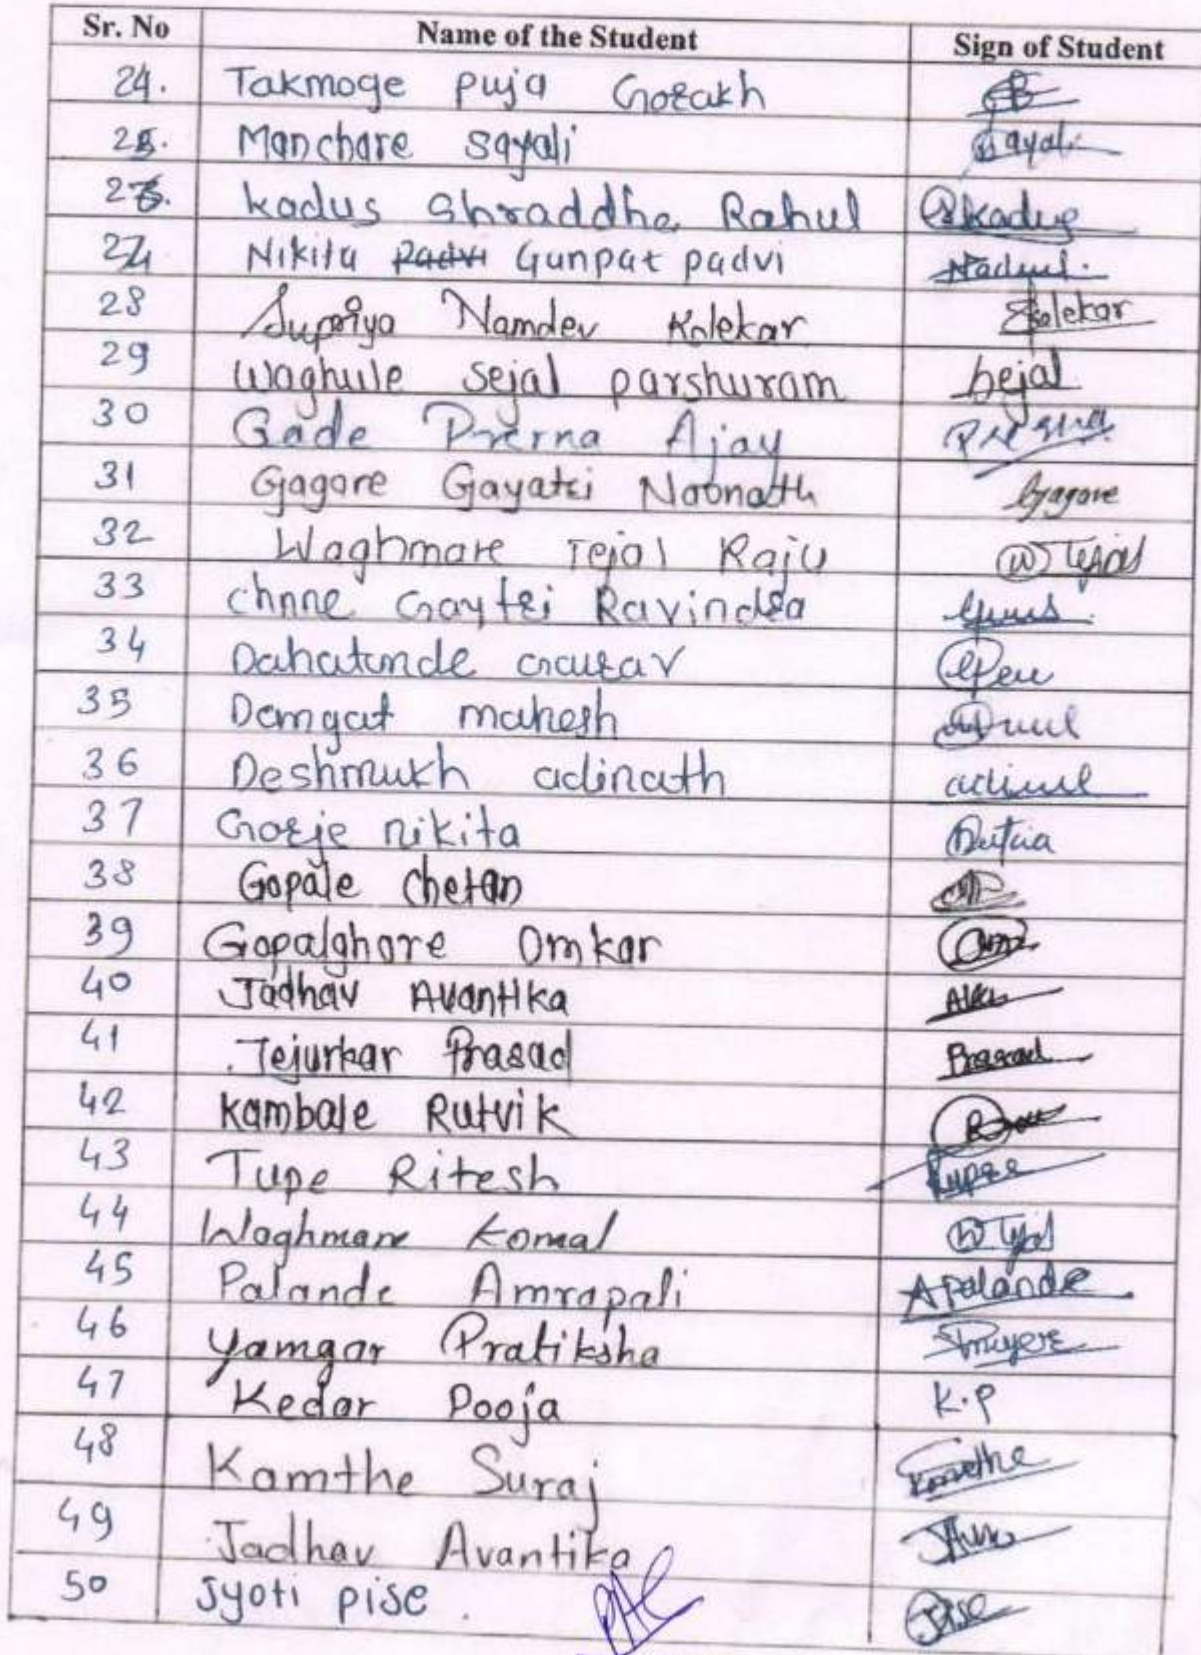 Sr. No Name of the Student Sign of Student
24. Takmoge puja Gorakh
25. Manchare sayali Sayali
26. kadus Shraddha Rahul Skadus
27 Nikita Padvi Gunpat padvi
28 Supriya Namdev Kolekar Skolekar
29 Waghule sejal parshuram Sejal
30 Gade Prerna Ajay Prerna
31 Gagare Gayatri Navnath Gagare
32 Waghmare Tejal Raju W Tejal
33 chnne Gaytri Ravindra
34 Dahatonde Gaurav
35 Domgat mahesh
36 Deshmukh adinath
37 Gorje nikita
38 Gopale Chetan
39 Gopalghare Omkar
40 Jadhav Avantika
41 Tejurkar Prasad Prasad
42 Kambale Rutvik
43 Tupe Ritesh
44 Waghmare Komal W Tejal
45 Palande Amrapali A Palande
46 Yamgar Pratiksha
47 Kedar Pooja K.P
48 Kamthe Suraj Kamthe
49 Jadhav Avantika
50 Jyoti pise. Pise